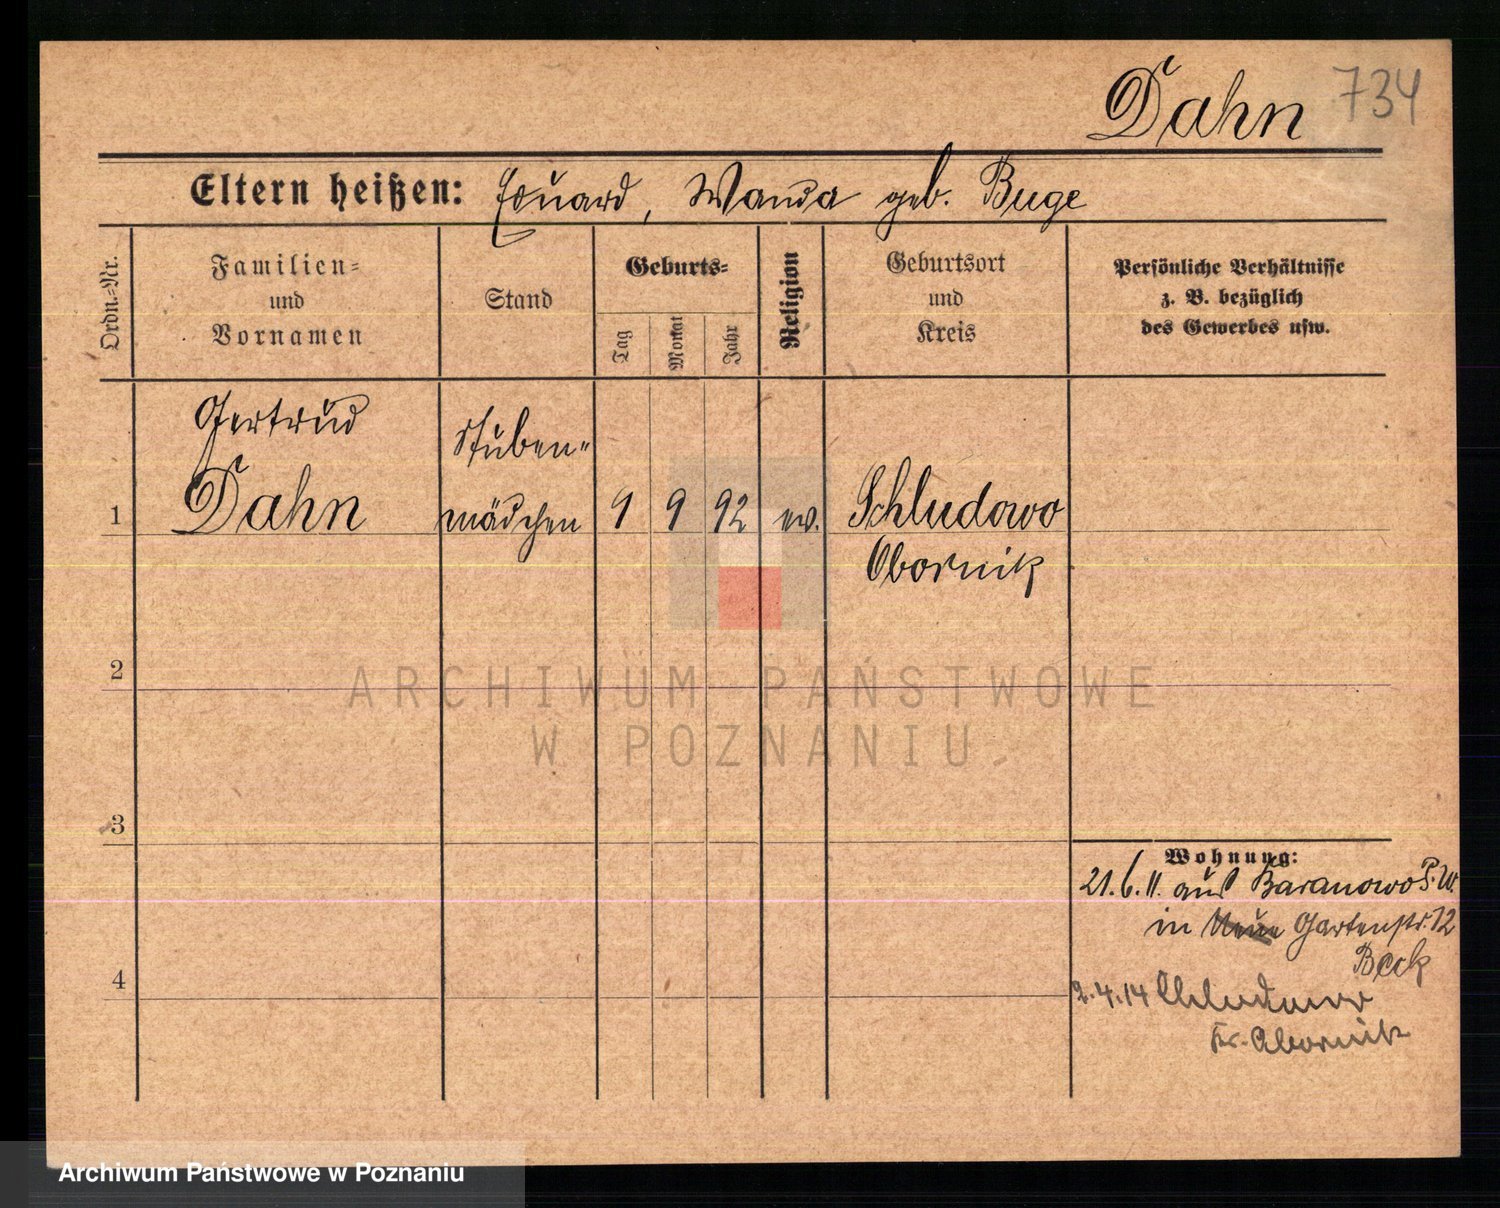 Dahn 734
Eltern heißen: Eduard, Wanda geb. Buge
Ordn.-Nr.
Familien-
und
Vornamen
Stand
Geburts-
Tag
Monat
Jahr
Religion
Geburtsort
und
Kreis
Persönliche Verhältnisse
z. B. bezüglich
des Gewerbes usw.
Gertrud
Stuben-
1 Dahn mädchen 9 9 92 ev. Schludowo
Obornik
2
3
4
Wohnung:
21.6.11. aus Baranowo P.W.
in Neue Gartenstr. 12
Beck
2.4.14 Chludowo
Kr. Obornik
ARCHIWUM PAŃSTWOWE
W POZNANIU
Archiwum Państwowe w Poznaniu